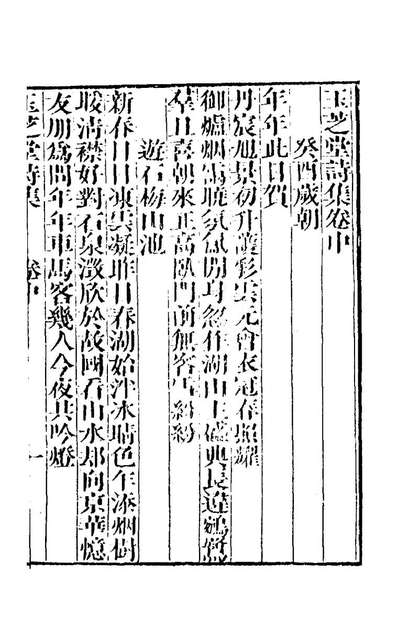 玉芝堂詩集卷中
癸酉歲朝
年年此日賀
丹宸旭景初升護彩雲元會衣冠春照耀
御爐烟靄曉氛氳閒身總作湖山主盛典長違鵷鷺
羣且喜朝來正高臥門前無客古紛紛
遊石梅山池
新春日日凍雲凝昨日春湖始泮冰晴色乍添烟樹
暖清襟好對石泉澂欣於故國看山水却向京華憶
友朋爲問年年車馬客幾人今夜共吟燈
玉芝堂詩集 卷中 一